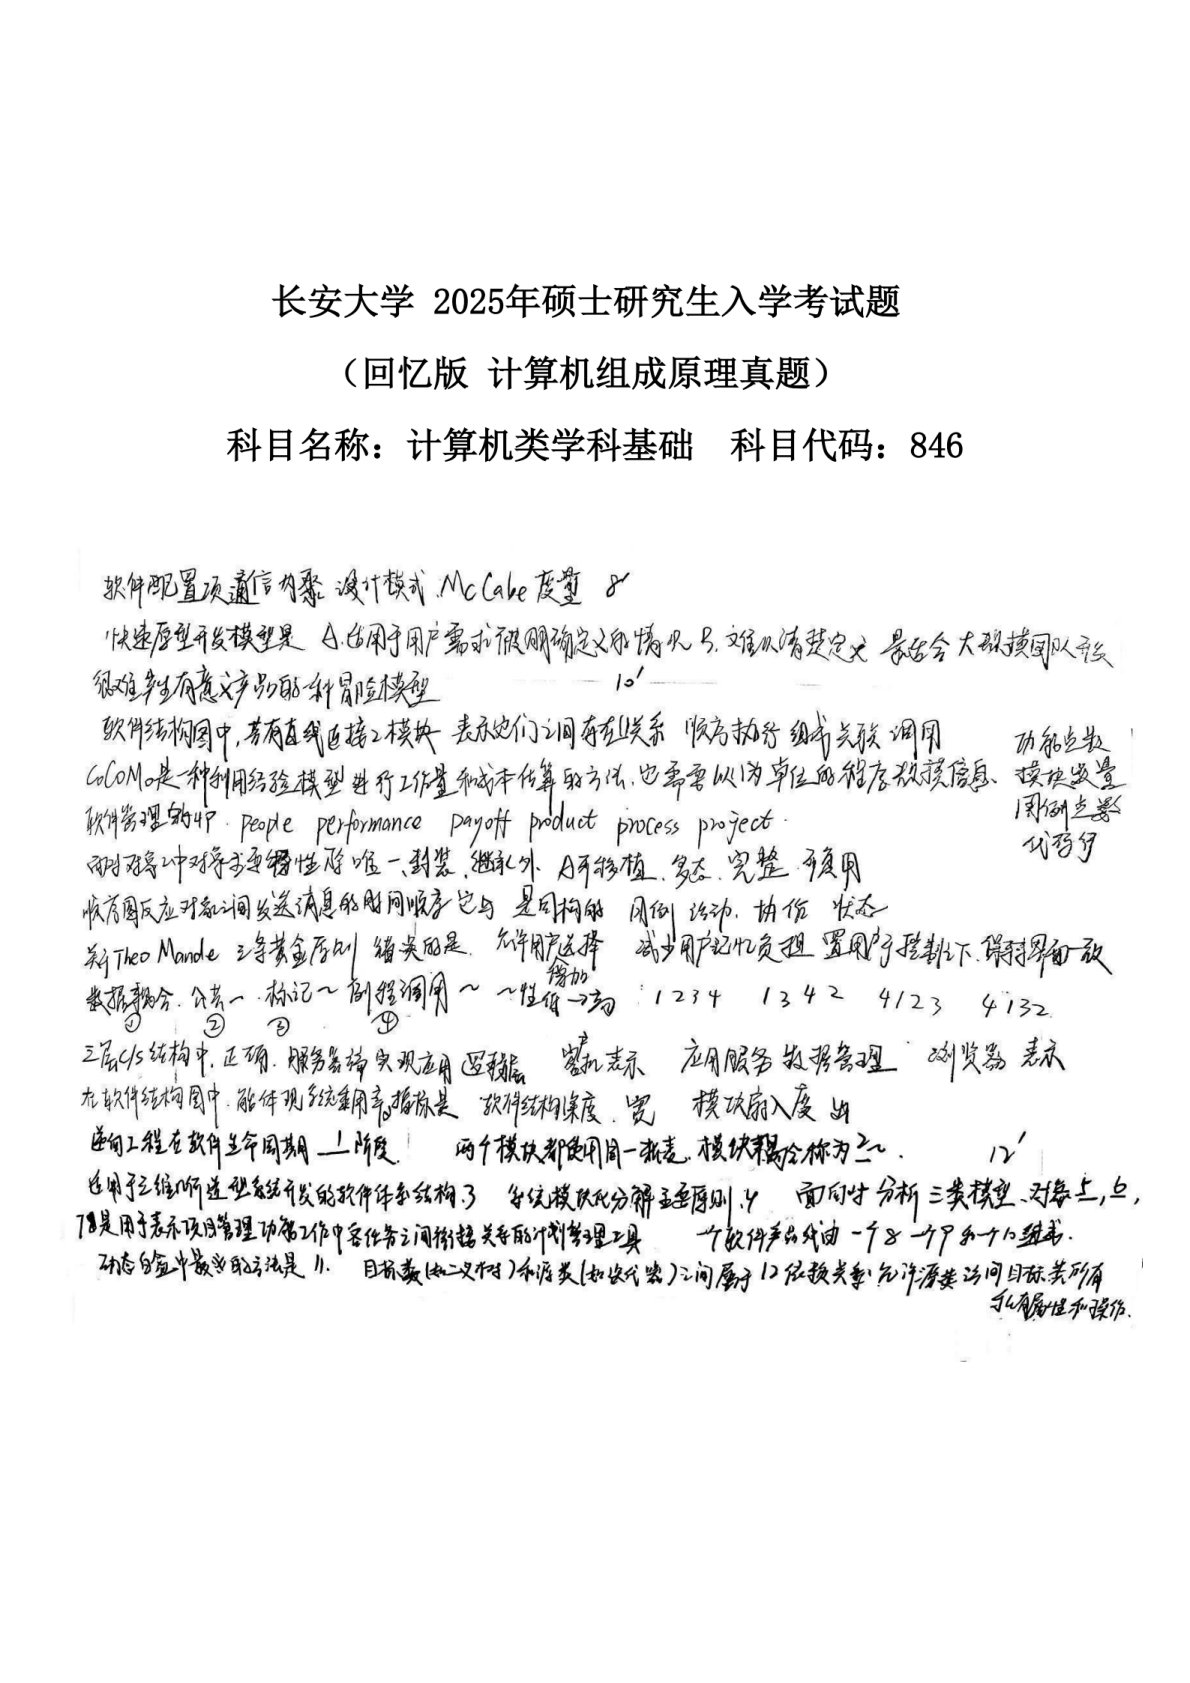 长安大学 2025年硕士研究生入学考试题
（回忆版 计算机组成原理真题）
科目名称：计算机类学科基础 科目代码：846
软件配置项 通信内聚 设计模式 McCabe度量 8'
快速原型开发模型是 A.适用于用户需求被明确定义的情况 B.难以清楚定义 最适合大规模团队开发
很难产生有意义产品的一种冒险模型 10'
软件结构图中,若有直线连接2模块 表示它们之间存在关系 顺序执行 组成 关联 调用
CoCoMo是一种利用经验模型进行工作量和成本估算的方法,也需要以1为单位的程序规模信息. 功能点数
模块数量
用例点数
代码行
软件管理的4P. people performance payoff product process project.
面对对象中对象主要特性除唯一,封装,继承外. A可移植. 多态. 完整. 可复用
顺序图反应对象之间发送消息的时间顺序它与 是同构的 用例 活动. 协作 状态
关于Theo Mande 三条黄金原则 错误的是. 允许用户选择 减少用户记忆负担 置用户于控制之下. 保持界面一致
数据耦合. 公共~ 标记~ 副程调用~ ~性 增加 低→高 1234 1342 4123 4132
① ② ③ ④
三层C/S结构中,正确. 服务器端实现应用逻辑层 客户机表示 应用服务数据管理 浏览器 表示
在软件结构图中.能体现系统重用率指标是 软件结构深度. 宽 模块扇入度 出
逆向工程在软件生命周期 1 阶段. 两个模块都使用同一张表,模块耦合称为2~. 12'
适用于三维几何造型系统开发的软件体系结构.3 系统模块化分解主要原则.4 面向对 分析三类模型、对象 5,6,
78是用于表示项目管理 中各任务之间衔接关系的计划管理工具 一个软件产品线由一个8 一个9和一个10组成.
动态白盒中最 的方法是 11. 目标类(如二叉树)和源类(如迭代器)之间属于12依赖关系.允许源类访问目标类所有
私有属性和操作.